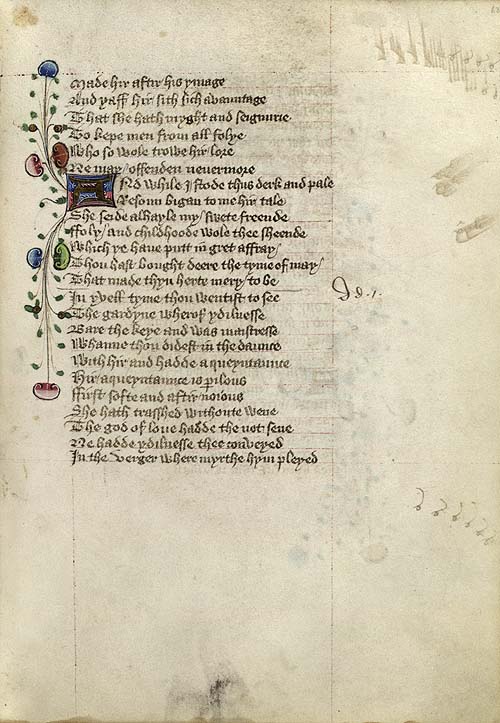 Made hir aftir his ymage
And yaff hir sith sich avauntage
That she hath myght and seignurie
To kepe men from all folye
Who so wole trowe hir lore
Ne may offenden nevermore
And while I stode thus derk and pale
Resoun bigan to me hir tale
She seide al hayle my swete freende
Foly and childhoode wole thee sheende
Which ye have putt in gret affray
Thou hast bought deere the tyme of may
That made thyn herte mery to be
In yvell tyme thou wentist to see
The gardyne wherof ydilnesse
Bare the keye and was maistresse
Whanne thou didest in the daunce
With hir and hadde aqueyntaunce
Hir aqueyntaunce is perilous
First softe and aftir noious
She hath trasshed withoute wene
The god of love hadde the not sene
Ne hadde ydilnesse thee conveyed
In the verger where myrthe hym pleyed